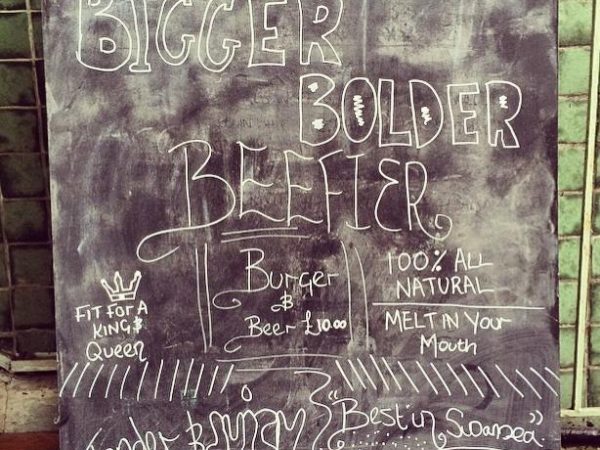 BIGGER
BOLDER
BEEFIER
Burger
&
Beer £10.00
100% ALL
NATURAL
MELT IN YOUR
Mouth
FIT FOR A
KING &
Queen
"Best in Swansea"